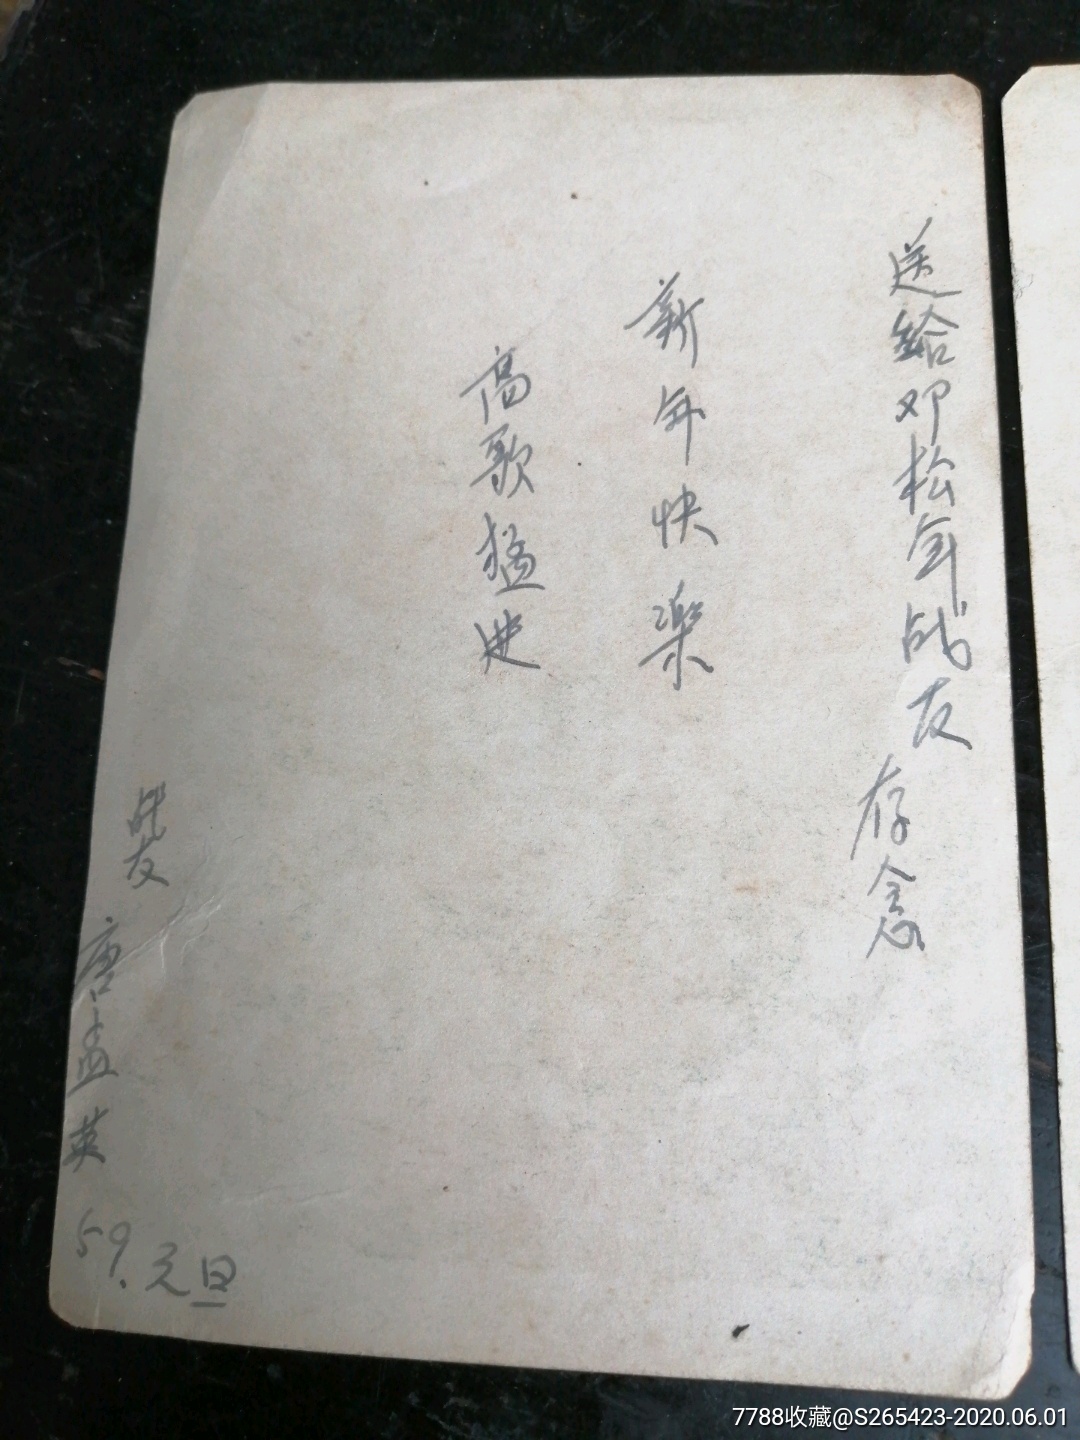 送给邓松年战友存念
新年快楽
高歌猛进
战友 唐孟英
59.元旦
7788收藏@S265423-2020.06.01